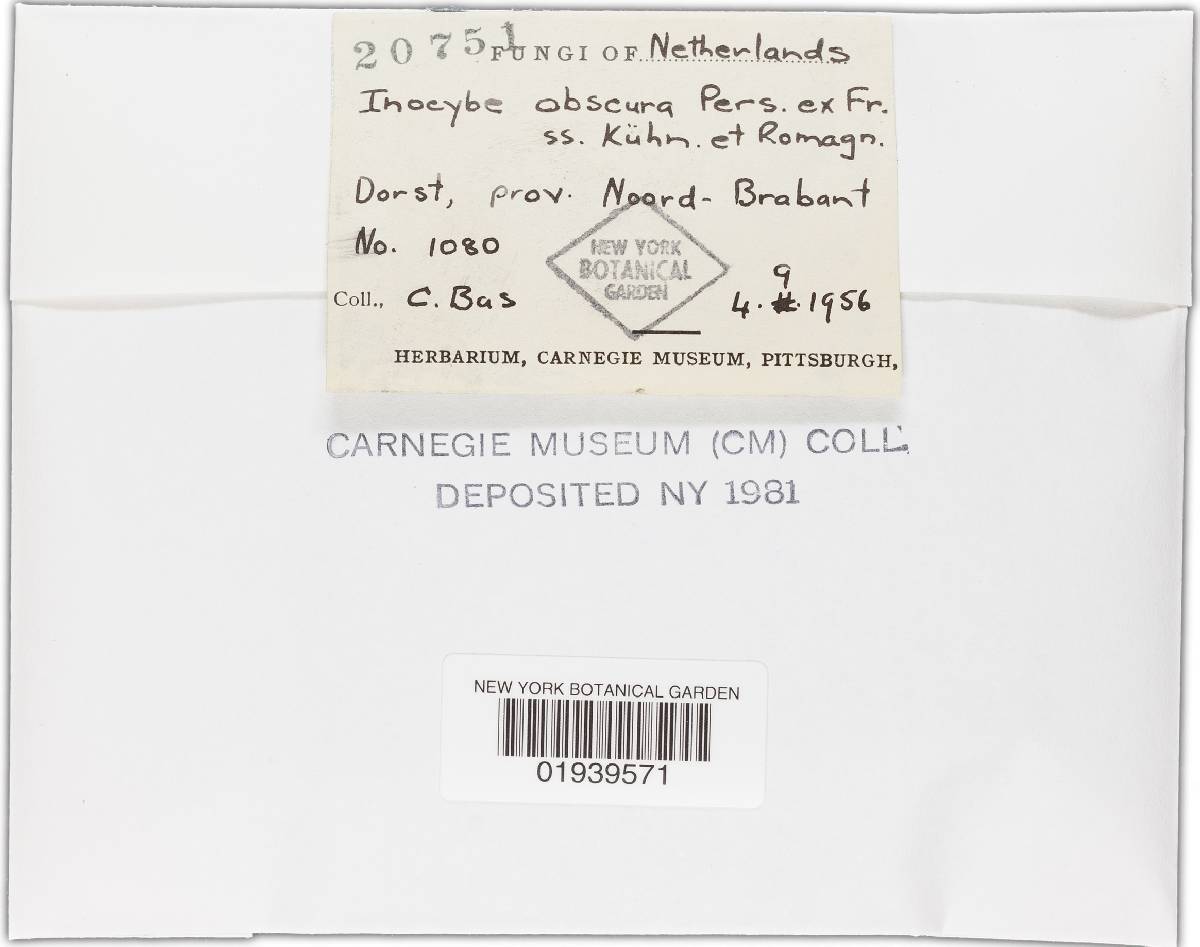 20751 FUNGI OF Netherlands
Inocybe obscura Pers. ex Fr.
ss. Kühn. et Romagn.
Dorst, prov. Noord-Brabant
No. 1080
NEW YORK
BOTANICAL
GARDEN
Coll., C. Bas
9
4. . 1956
HERBARIUM, CARNEGIE MUSEUM, PITTSBURGH,
CARNEGIE MUSEUM (CM) COLL.
DEPOSITED NY 1981
NEW YORK BOTANICAL GARDEN
01939571